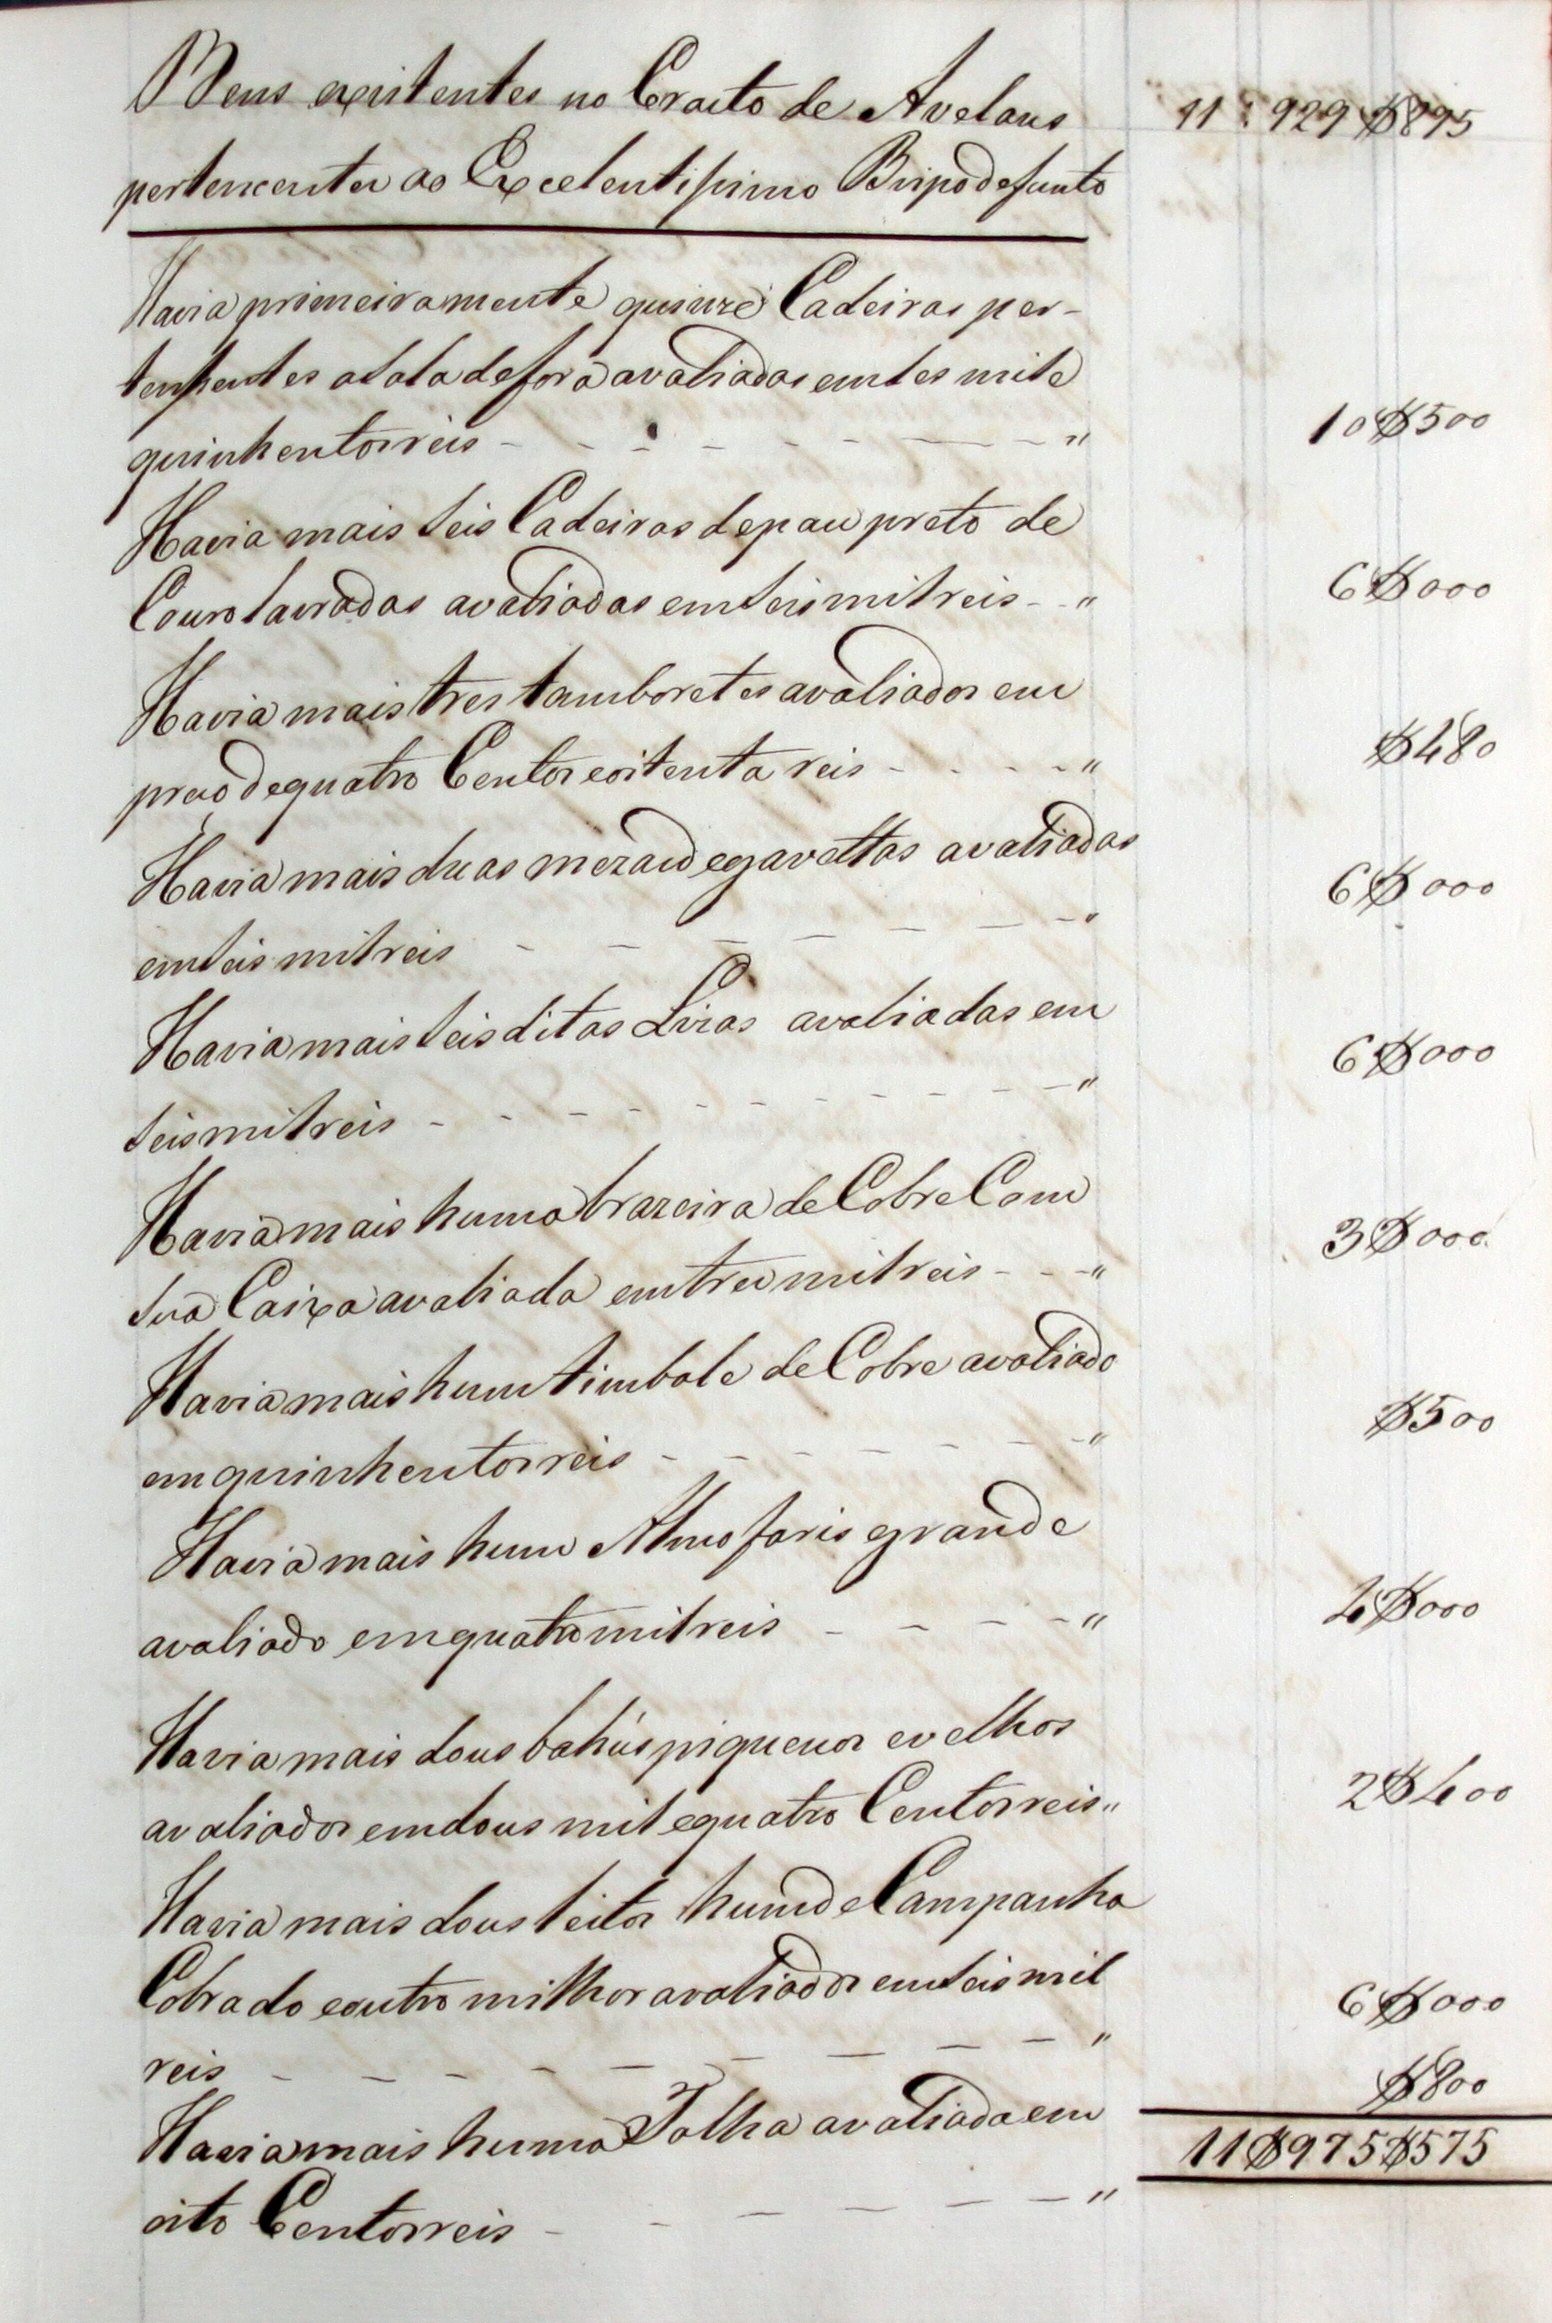 Bens existentes no Crasto de Avelans 11:929$895
pertencentes ao Excelentissimo Bispo defunto
Havia primeiramente quinze Cadeiras per-
tencentes a sala de fora avaliadas em des mil e
quinhentos reis - - - - - - - - - " 10$500
Havia mais seis Cadeiras de pau preto de
Couro lavradas avaliadas em seis mil reis - - " 6$000
Havia mais tres tamboretes avaliados em
preço de quatro Centos e oitenta reis - - - - - " $480
Havia mais duas mezas de gavettas avaliadas
em seis mil reis - - - - - - - " 6$000
Havia mais seis ditas Lizas avaliadas em
seis mil reis - - - - - - - - - - - " 6$000
Havia mais huma brazeira de Cobre Com
sua Caixa avaliada em tres mil reis - - - " 3$000
Havia mais hum timbale de Cobre avaliado
em quinhentos reis - - - - - - - - " $500
Havia mais hum Almofaris grande
avaliado em quatro mil reis - - - - " 4$000
Havia mais dous bahús piquenos e velhos
avaliados em dous mil e quatro Centos reis " 2$400
Havia mais dous leitos hum de Campanha
Cobrado e outro milhor avaliados em seis mil
reis - - - - - - - - - " 6$000
Havia mais huma Talha avaliada em $800
oito Centos reis - - - - - - " 11$975$575